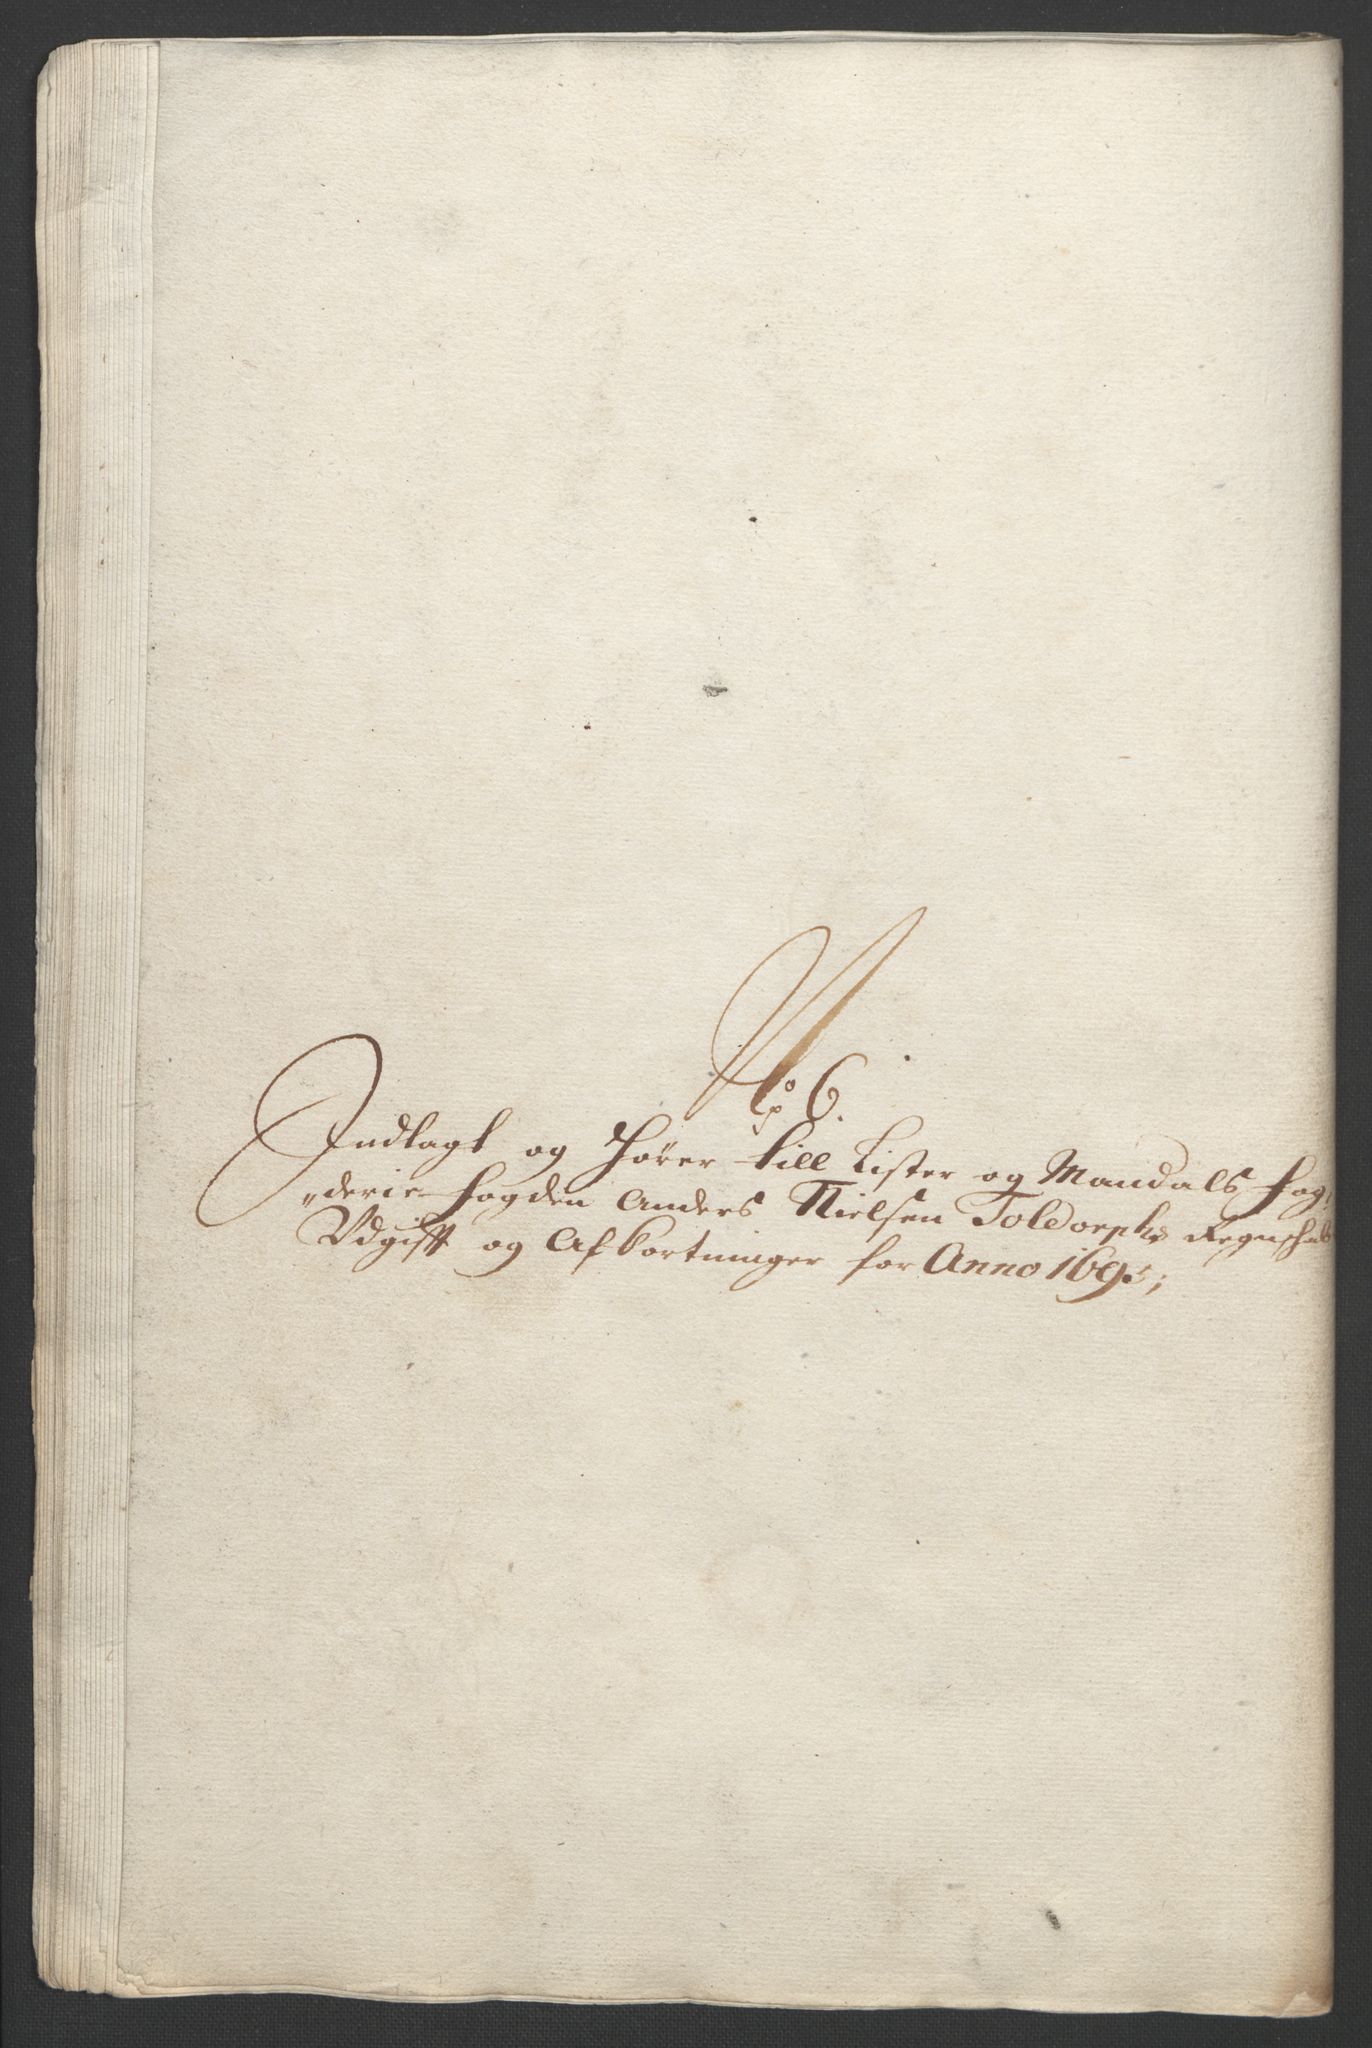 No 6.
Indlagt og hører till Lister og Mandals fog,,
„derie fogden Anders Nielsen Toldorphs Regnschab
Vdgifft og Afkortninger for Anno